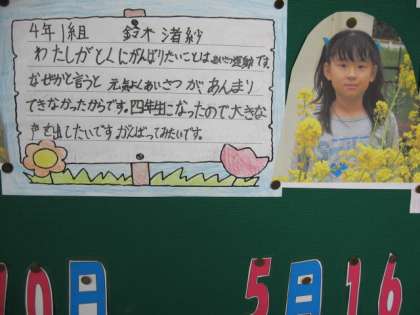 4年1組 鈴木渚紗
わたしがとくにがんばりたいことはあいさつ運動です。
なぜかと言うと元気よくあいさつがあんまり
できなかったからです。四年生になったので大きな
声を出したいですがんばってみたいです。
10日 5月16